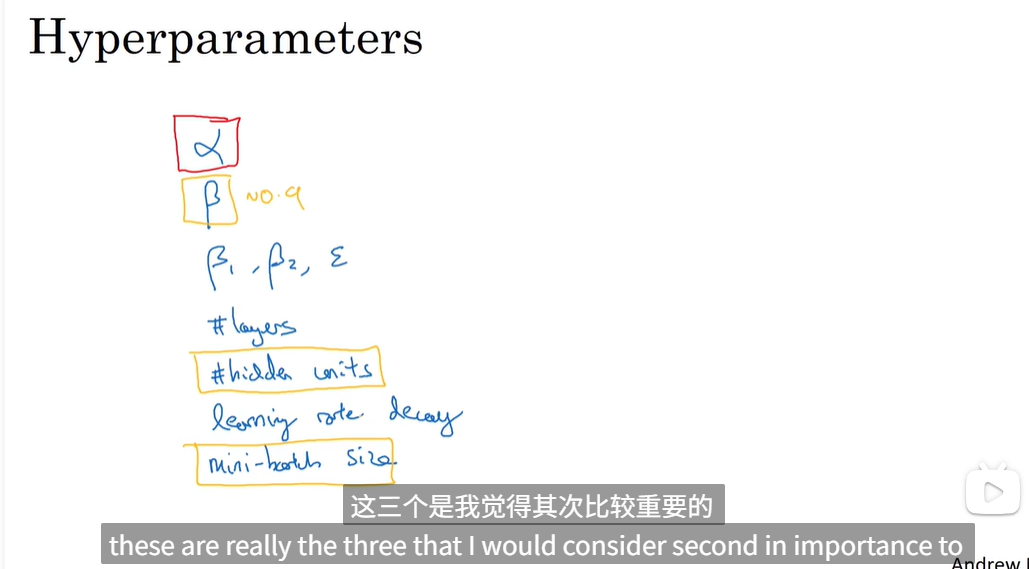 Hyperparameters
α
β ~0.9
β₁, β₂, ε
#layers
#hidden units
learning rate decay
mini-batch size
这三个是我觉得其次比较重要的
these are really the three that I would consider second in importance to
Andrew